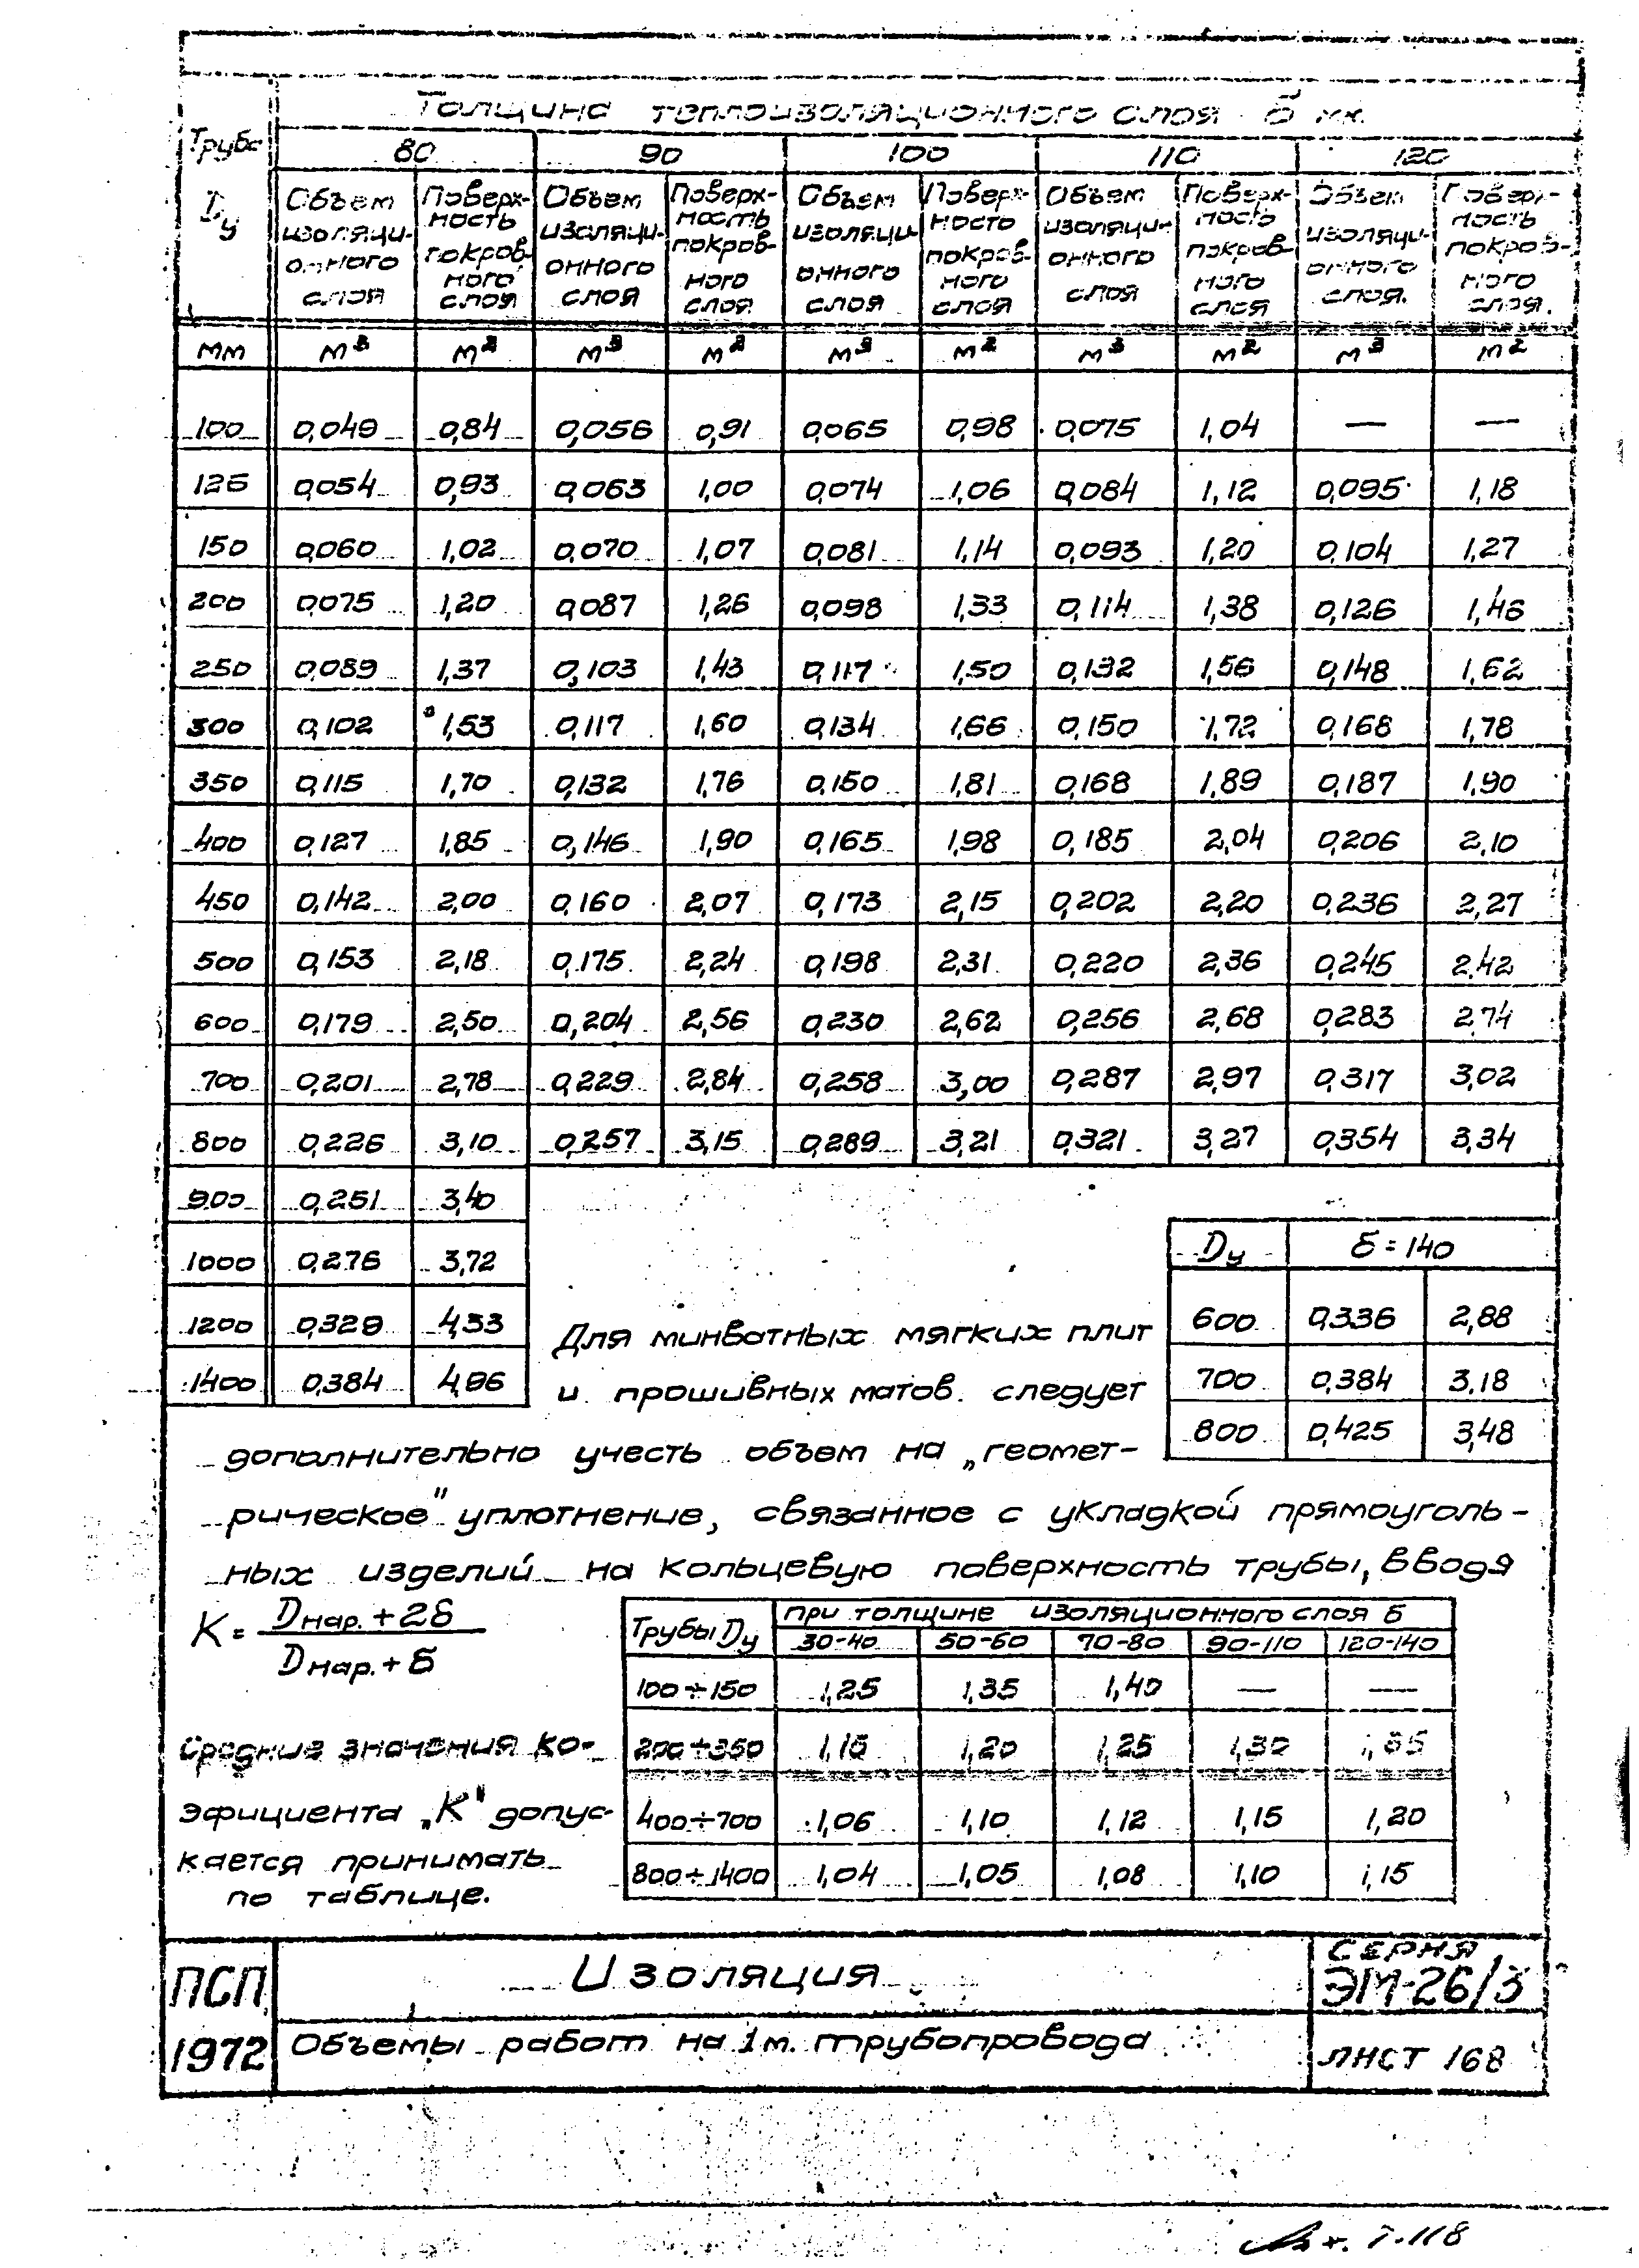 Толщина теплоизоляционного слоя б мм.
Трубы Dу
80 90 100 110 120
Объем изоляционного слоя Поверхность покровного слоя Объем изоляционного слоя Поверхность покровного слоя Объем изоляционного слоя Поверхность покровного слоя Объем изоляционного слоя Поверхность покровного слоя Объем изоляционного слоя. Поверхность покровного слоя.
мм м³ м² м³ м² м³ м² м³ м² м³ м²
100 0,049 0,84 0,056 0,91 0,065 0,98 0,075 1,04 — —
125 0,054 0,93 0,063 1,00 0,074 1,06 0,084 1,12 0,095 1,18
150 0,060 1,02 0,070 1,07 0,081 1,14 0,093 1,20 0,104 1,27
200 0,075 1,20 0,087 1,26 0,098 1,33 0,114 1,38 0,126 1,46
250 0,089 1,37 0,103 1,43 0,117 1,50 0,132 1,56 0,148 1,62
300 0,102 1,53 0,117 1,60 0,134 1,66 0,150 1,72 0,168 1,78
350 0,115 1,70 0,132 1,76 0,150 1,81 0,168 1,89 0,187 1,90
400 0,127 1,85 0,146 1,90 0,165 1,98 0,185 2,04 0,206 2,10
450 0,142 2,00 0,160 2,07 0,173 2,15 0,202 2,20 0,236 2,27
500 0,153 2,18 0,175 2,24 0,198 2,31 0,220 2,36 0,245 2,42
600 0,179 2,50 0,204 2,56 0,230 2,62 0,256 2,68 0,283 2,74
700 0,201 2,78 0,229 2,84 0,258 3,00 0,287 2,97 0,317 3,02
800 0,226 3,10 0,257 3,15 0,289 3,21 0,321 3,27 0,354 3,34
900 0,251 3,40
1000 0,276 3,72
1200 0,329 4,33
1400 0,384 4,96
Dу б=140
600 0,336 2,88
700 0,384 3,18
800 0,425 3,48
Для минватных мягких плит
и прошивных матов. следует
дополнительно учесть объем на „геомет-
рическое" уплотнение, связанное с укладкой прямоуголь-
ных изделий на кольцевую поверхность трубы, вводя
K = Dнар. + 2б
Dнар. + б
Средние значения ко-
эфициента „К" допус-
кается принимать
по таблице.
Трубы Dу при толщине изоляционного слоя б
30-40 50-60 70-80 90-110 120-140
100÷150 1,25 1,35 1,40 — —
200÷350 1,15 1,20 1,25 1,30 1,35
400÷700 1,06 1,10 1,12 1,15 1,20
800÷1400 1,04 1,05 1,08 1,10 1,15
ПСП
1972
Изоляция
Объемы работ на 1м. трубопровода
СЕРИЯ
ЭМ-26/3
ЛИСТ 168